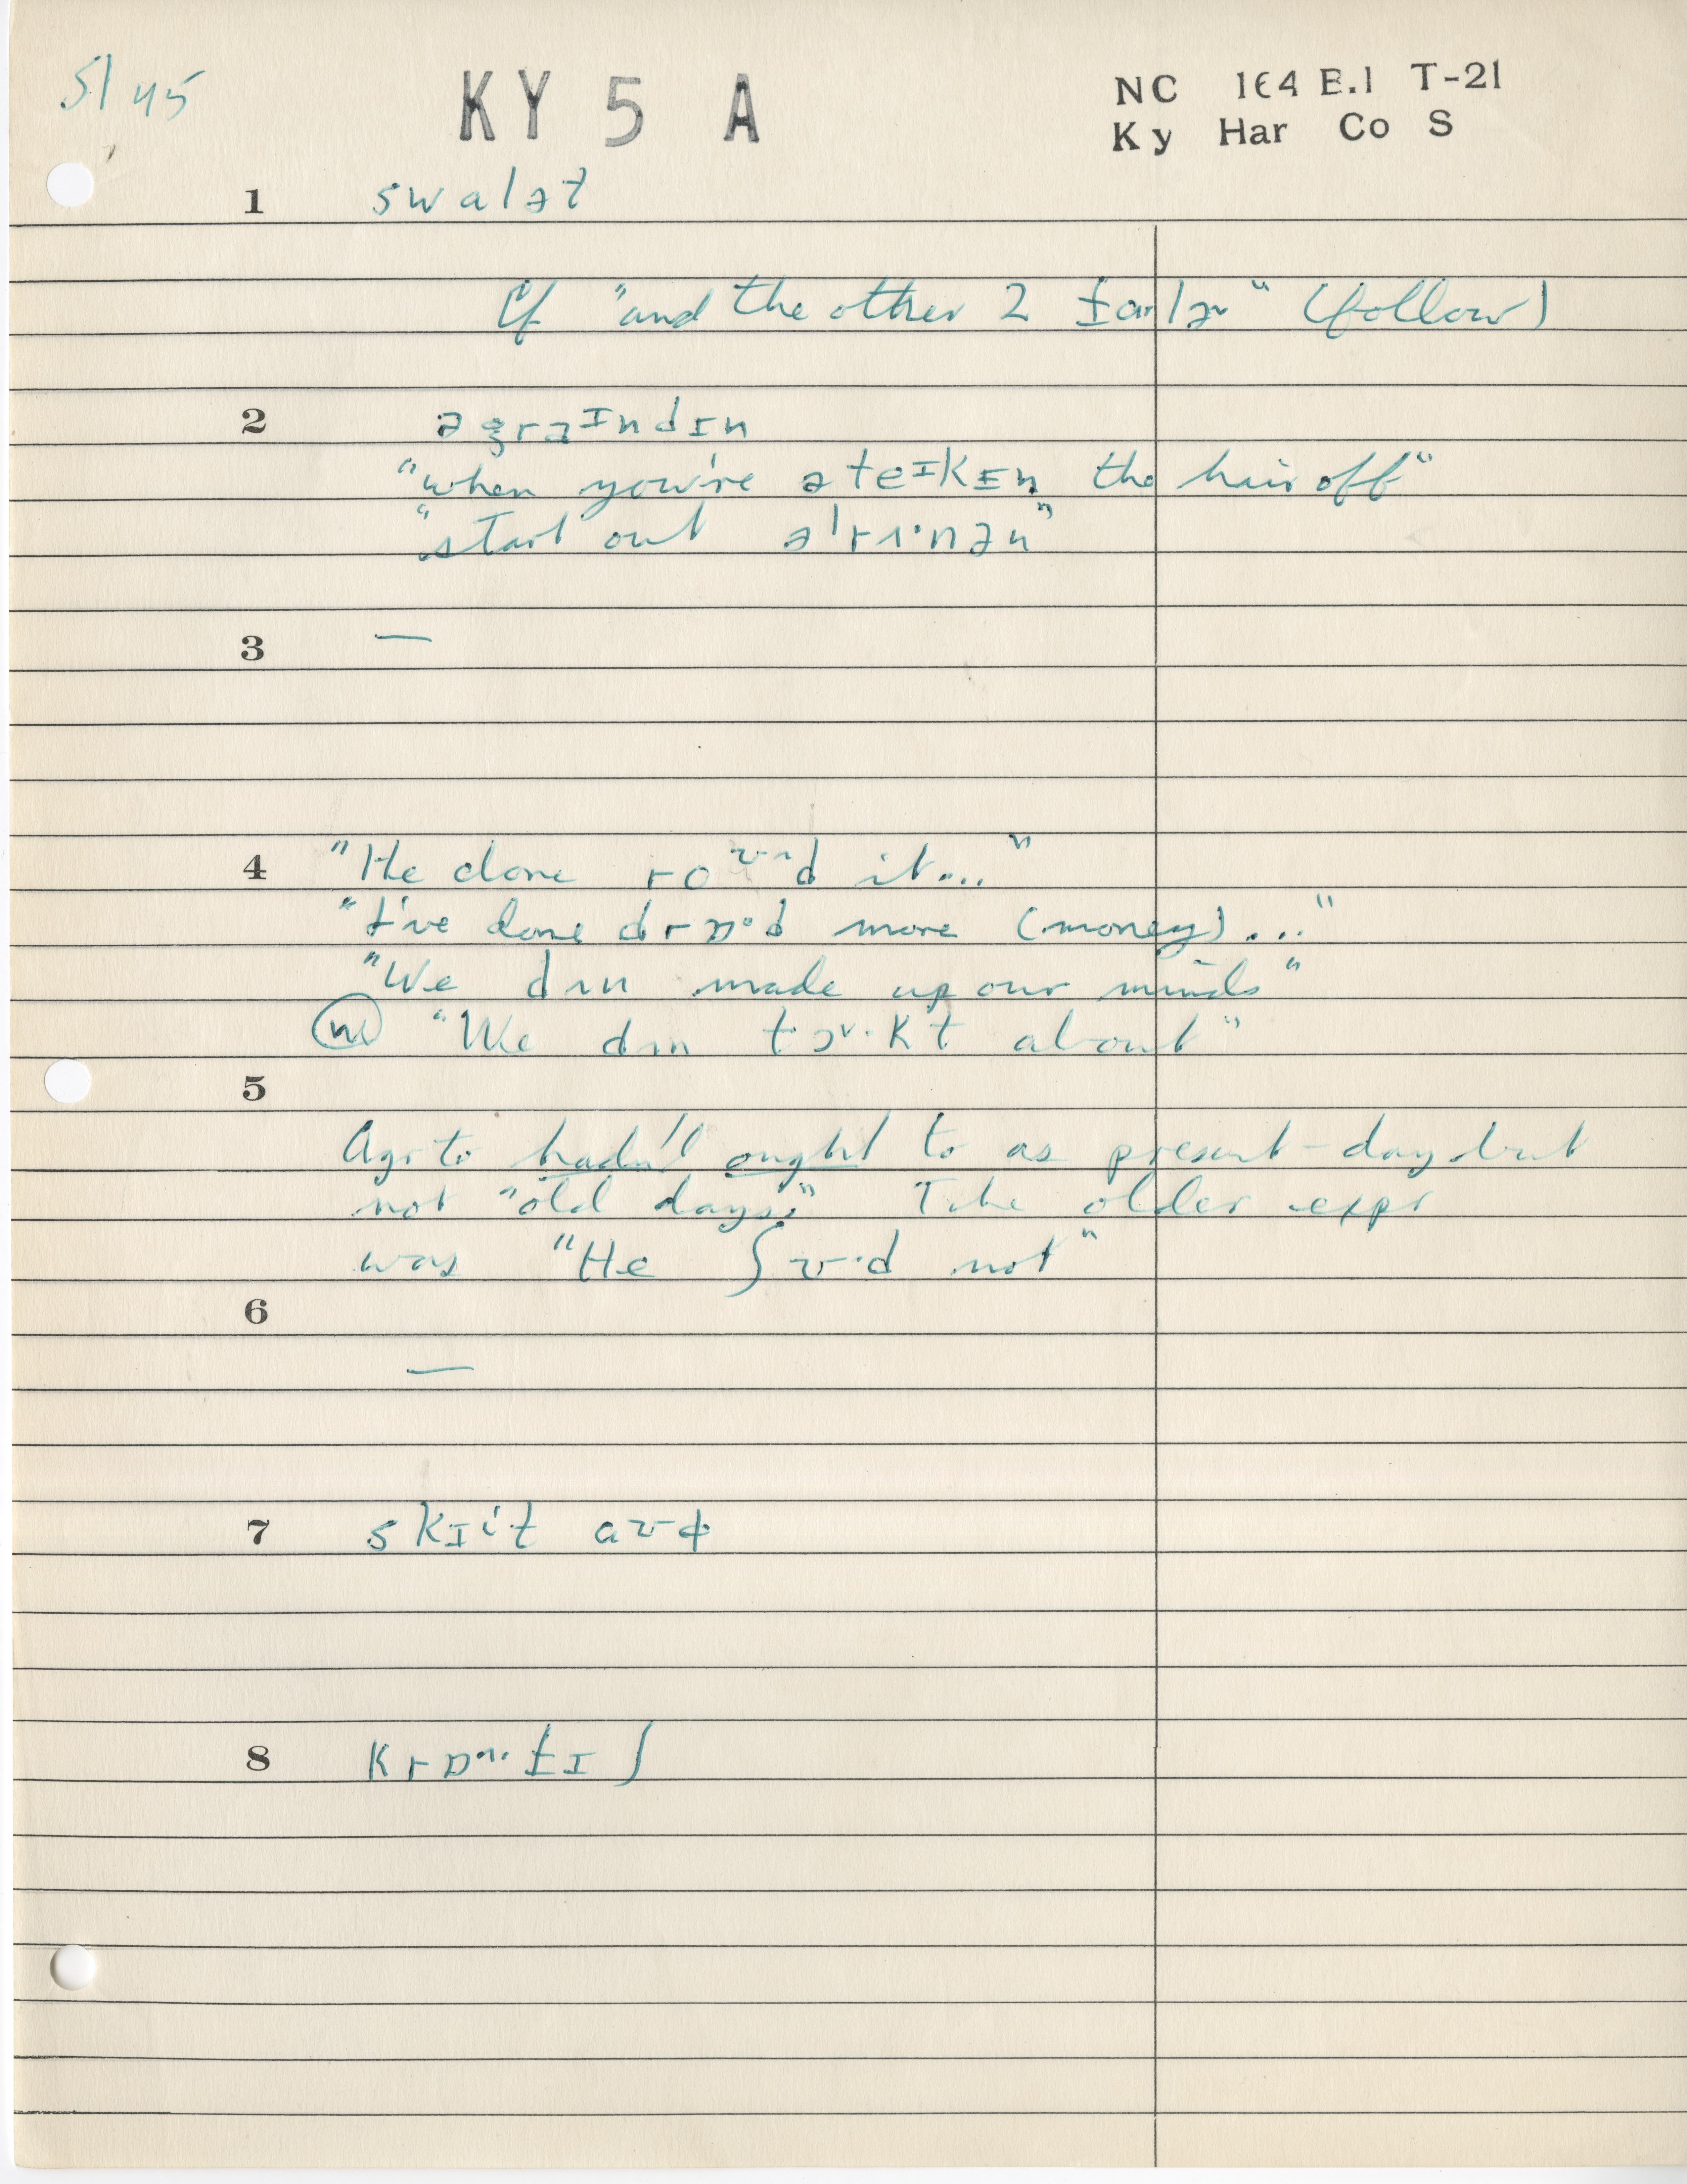 5145
KY 5 A
NC 164 E.1 T-21
Ky Har Co S
1 swalət
Cf "and the other 2 (follow)
2 əgraɪndɪn
"when you're ə teɪkɪn the hair off"
"start out
3 —
4 "He done it..."
"I've done more (money)..."
"We dʌn made up our minds"
"We dʌn about"
5
Agr to hadn't ought to as present-day but
not "old days." The older expr
was "He ʃʊ·d not"
6
—
7
8